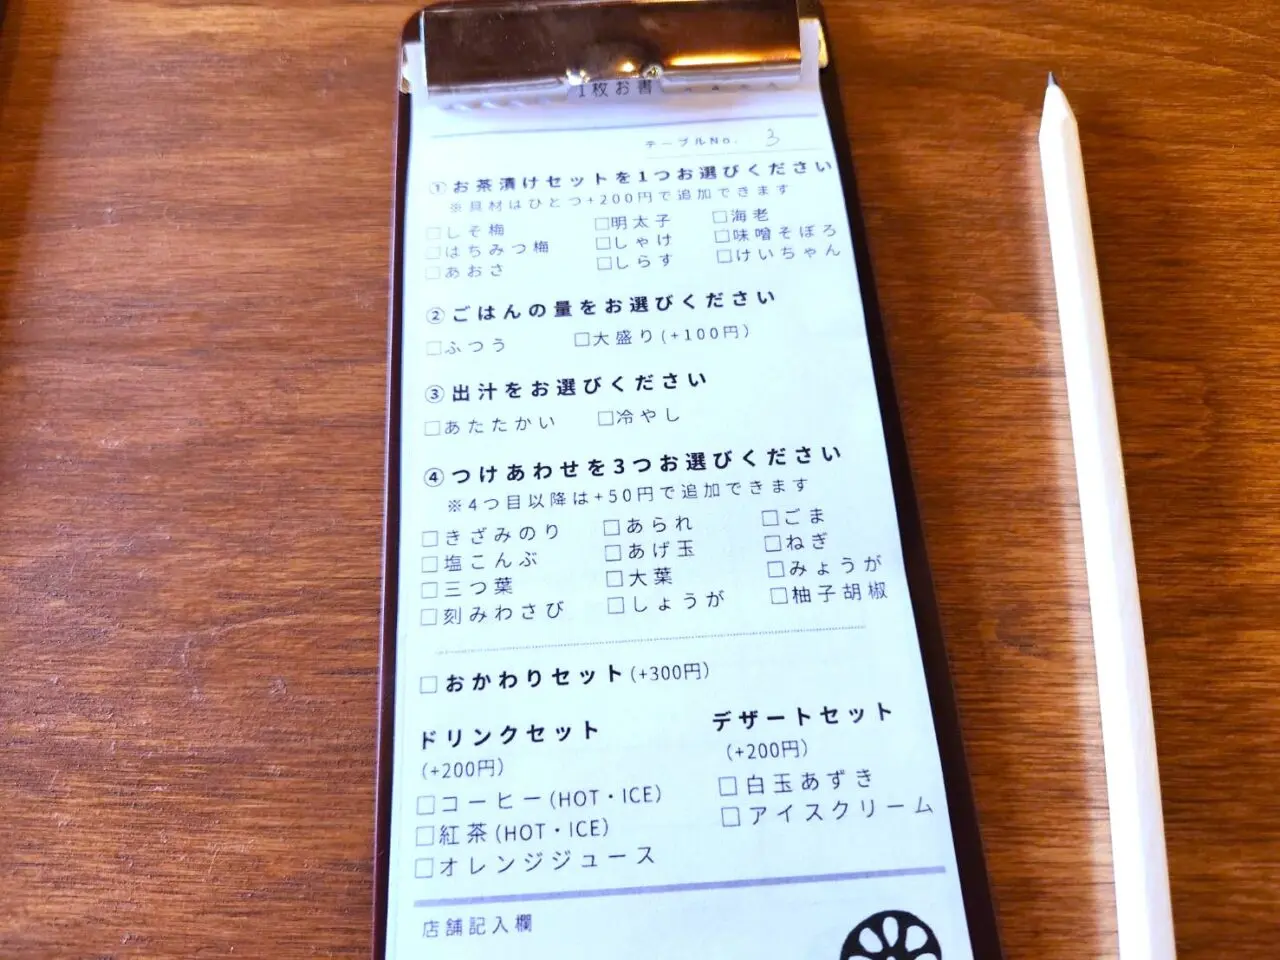 1枚お書
テーブルNo. 3
①お茶漬けセットを1つお選びください
※具材はひとつ+200円で追加できます
□しそ梅 □明太子 □海老
□はちみつ梅 □しゃけ □味噌そぼろ
□あおさ □しらす □けいちゃん
②ごはんの量をお選びください
□ふつう □大盛り(+100円)
③出汁をお選びください
□あたたかい □冷やし
④つけあわせを3つお選びください
※4つ目以降は+50円で追加できます
□きざみのり □あられ □ごま
□塩こんぶ □あげ玉 □ねぎ
□三つ葉 □大葉 □みょうが
□刻みわさび □しょうが □柚子胡椒
□おかわりセット(+300円)
ドリンクセット
(+200円)
□コーヒー(HOT・ICE)
□紅茶(HOT・ICE)
□オレンジジュース
デザートセット
(+200円)
□白玉あずき
□アイスクリーム
店舗記入欄